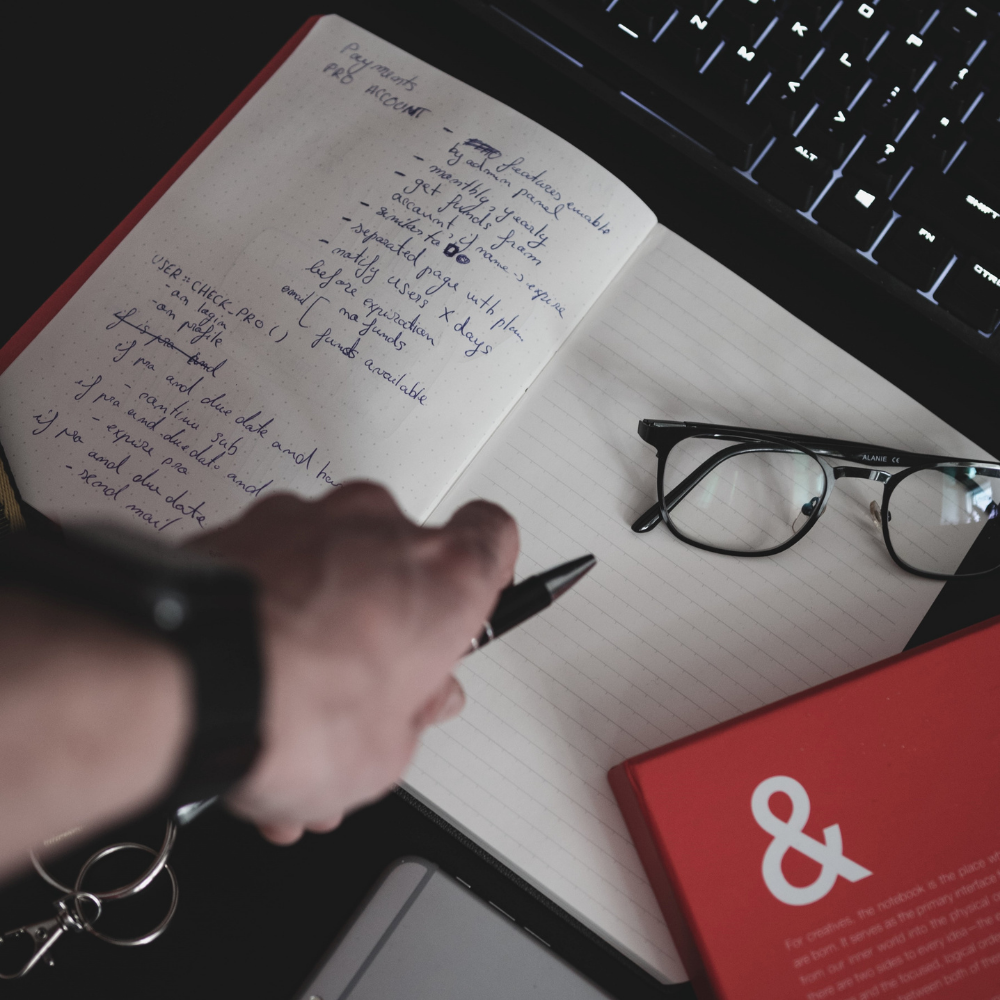 Payments
PRO ACCOUNT
- features enable
by admin panel
- monthly, yearly
- get funds from
account, if none -> expire
- similar to DO
- separated page with plan
- notify users X days
before expiration
email [ no funds
funds available
USER::CHECK_PRO()
- on login
- on profile
if is pro and
if pro and due date and
- continue sub
if pro and due date and
- expire pro
if pro and due date
- send mail
ALANIE CE
N
M
K
O
L
P
ALT
FN
SHIFT
CTRL
&
For creatives, the notebook is the place
are born. It serves as the primary interface
from our inner world into the physical
there are two sides to every idea—the
and the focused, logical
between both of